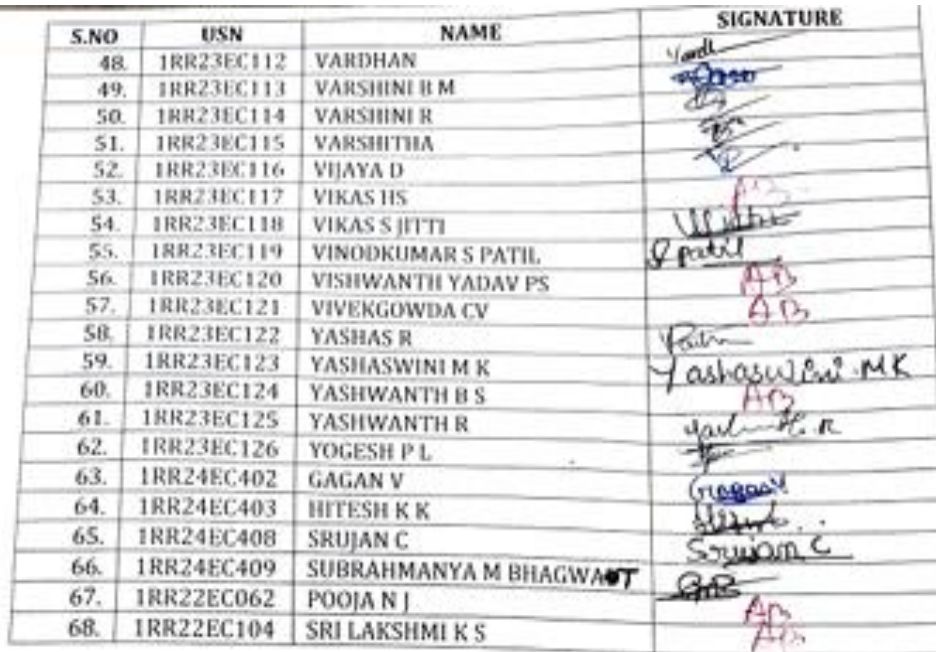 S.NO USN NAME SIGNATURE
48. 1RR23EC112 VARDHAN Vardh
49. 1RR23EC113 VARSHINI B M
50. 1RR23EC114 VARSHINI R
51. 1RR23EC115 VARSHITHA
52. 1RR23EC116 VIJAYA D
53. 1RR23EC117 VIKAS HS AB
54. 1RR23EC118 VIKAS S JITTI
55. 1RR23EC119 VINODKUMAR S PATIL S patil
56. 1RR23EC120 VISHWANTH YADAV PS AB
57. 1RR23EC121 VIVEKGOWDA CV AB
58. 1RR23EC122 YASHAS R
59. 1RR23EC123 YASHASWINI M K Yashaswini M K
60. 1RR23EC124 YASHWANTH B S AB
61. 1RR23EC125 YASHWANTH R
62. 1RR23EC126 YOGESH P L
63. 1RR24EC402 GAGAN V Gagan V
64. 1RR24EC403 HITESH K K
65. 1RR24EC408 SRUJAN C Srujan C
66. 1RR24EC409 SUBRAHMANYA M BHAGWAT
67. 1RR22EC062 POOJA N J AB
68. 1RR22EC104 SRI LAKSHMI K S AB